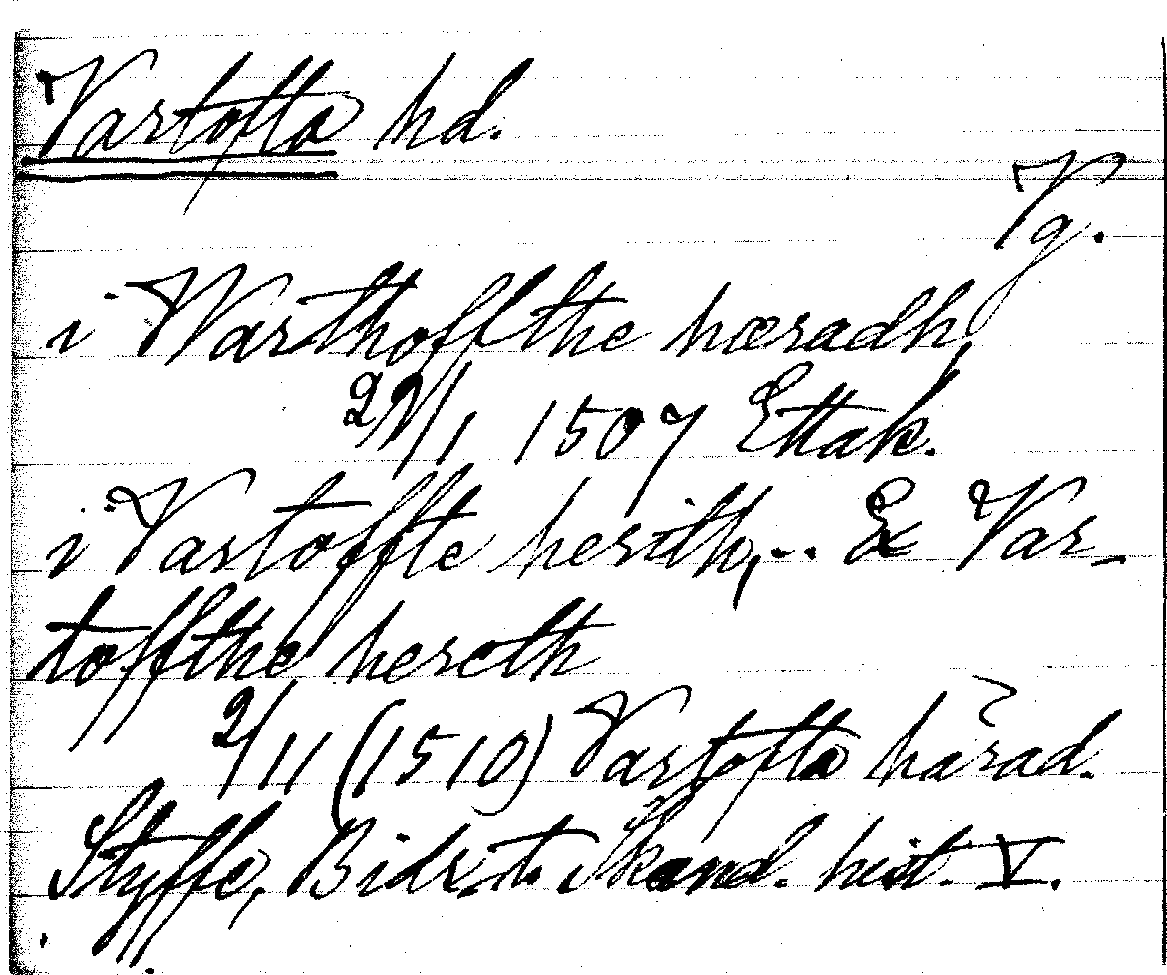 Vartofta hd.
Vg.
i Warthoffthe hæradh
1507 Ettak.
i Vartoffte herith, .. & Var-
toffthe hereth
2/11 (1510) Vartofta härad.
Styffe, Bidr. t. Skand. hist. V.